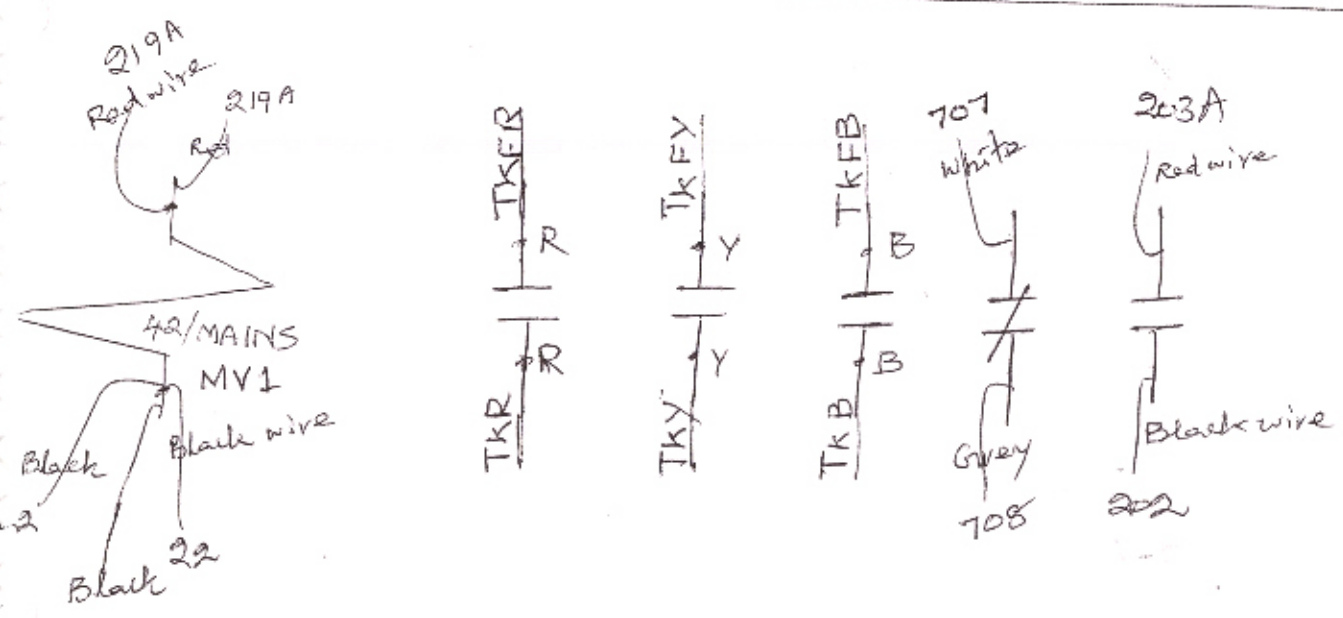 219A
Red wire
219A
Red
42/MAINS
MV1
Black
Black wire
22
Black
TKFR
R
R
TKR
TKFY
Y
Y
TKY
TKFB
B
B
TKB
707
White
Grey
708
203A
Red wire
Black wire
202